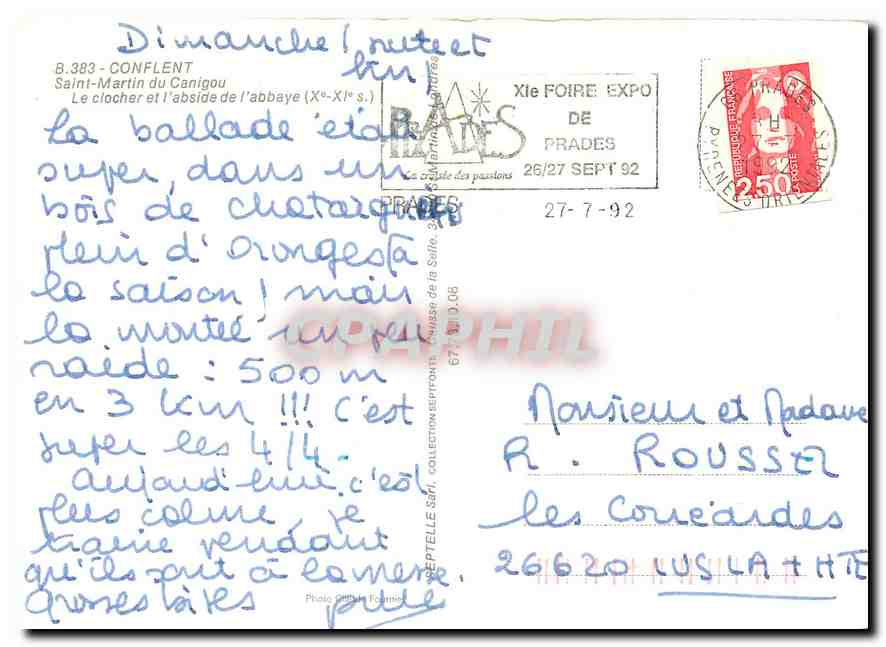 Dimanche
B.383 - CONFLENT
Saint-Martin du Canigou
Le clocher et l'abside de l'abbaye (Xe-XIe s.)
La ballade était
super, dans un
bois de chatargners
plein d'Oronges à
la saison ! mais
la montée un peu
raide : 500 m
en 3 km !!! C'est
super les 4/4.
Aujourd'hui c'est
plus calme, je
traine pendant
qu'ils sont à la messe.
Grosses bises
Photo Claude Fournier
SEPTELLE Sarl. COLLECTION SEPTFONTS
67.70.10.08
PRADES
La croisée des passions
XIe FOIRE EXPO
DE
PRADES
26/27 SEPT 92
PRADES
27-7-92
PRADES
PYRENEES ORIENTALES
1992
REPUBLIQUE FRANÇAISE
2,50
LA POSTE
CPAPHIL
Monsieur et Madame
R. ROUSSEL
les
26620 LUS LA + HTE